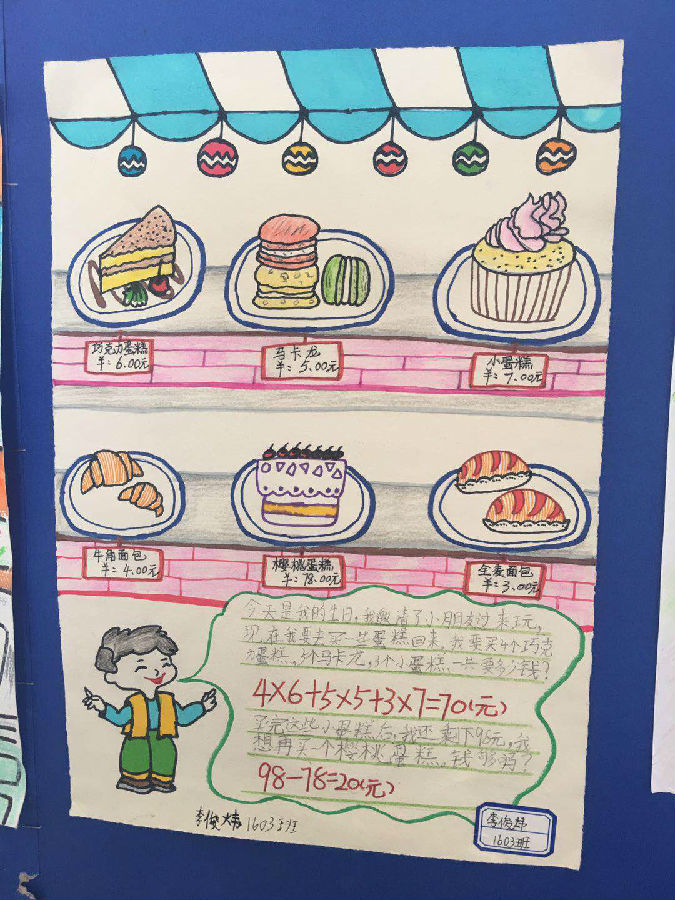 巧克力蛋糕
羊:6.00元
马卡龙
羊:5.00元
小蛋糕
羊:7.00元
牛角面包
羊:4.00元
樱桃蛋糕
羊:78.00元
全麦面包
羊:3.00元
今天是我的生日,我邀请了小朋友过来玩,
现在我要去买一些蛋糕回来,我要买4个巧克
力蛋糕,5个马卡龙,3个小蛋糕,一共要多少钱?
4×6+5×5+3×7=70(元)
了完这些小蛋糕后,我还剩下98元,我
想再买一个樱桃蛋糕,钱够吗?
98-78=20(元)
李俊 1603班
李俊
1603班